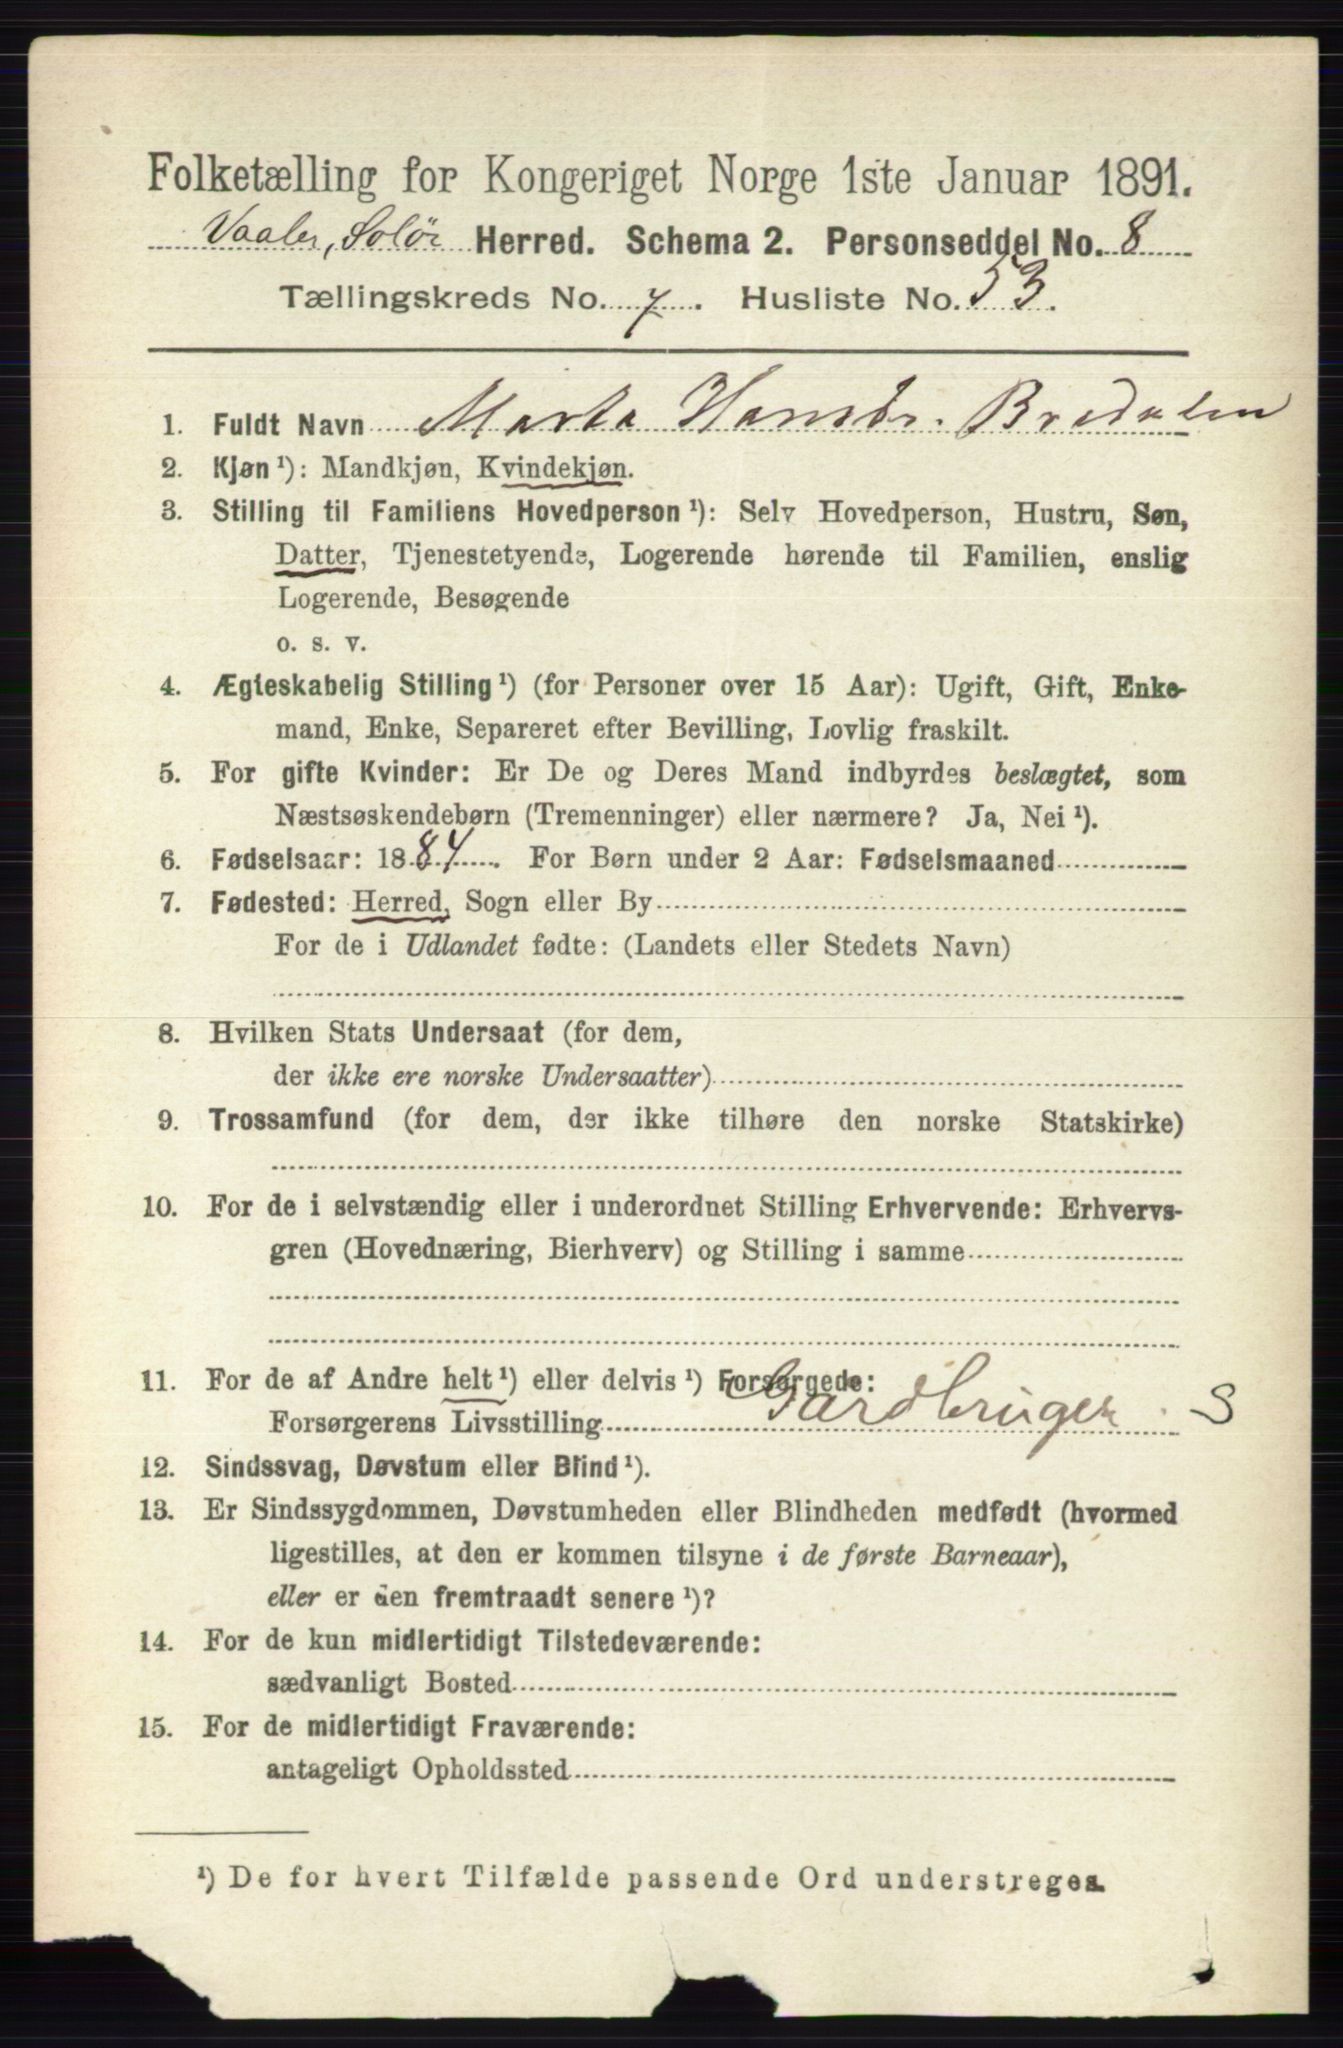 Folketælling for Kongeriget Norge 1ste Januar 1891.
Vaaler, Solör Herred. Schema 2. Personseddel No. 8
Tællingskreds No. 7. Husliste No. 53.
1. Fuldt Navn Marta Hansdr. Bredalen
2. Kjøn ¹): Mandkjøn, Kvindekjøn.
3. Stilling til Familiens Hovedperson ¹): Selv Hovedperson, Hustru, Søn,
Datter, Tjenestetyende, Logerende hørende til Familien, enslig
Logerende, Besøgende
o. s. v.
4. Ægteskabelig Stilling ¹) (for Personer over 15 Aar): Ugift, Gift, Enke-
mand, Enke, Separeret efter Bevilling, Lovlig fraskilt.
5. For gifte Kvinder: Er De og Deres Mand indbyrdes beslægtet, som
Næstsøskendebørn (Tremenninger) eller nærmere? Ja, Nei ¹).
6. Fødselsaar: 1884. For Børn under 2 Aar: Fødselsmaaned
7. Fødested: Herred, Sogn eller By
For de i Udlandet fødte: (Landets eller Stedets Navn)
8. Hvilken Stats Undersaat (for dem,
der ikke ere norske Undersaatter)
9. Trossamfund (for dem, der ikke tilhøre den norske Statskirke)
10. For de i selvstændig eller i underordnet Stilling Erhvervende: Erhvervs-
gren (Hovednæring, Bierhverv) og Stilling i samme
11. For de af Andre helt ¹) eller delvis ¹) Forsørgede:
Forsørgerens Livsstilling Gardbruger. S
12. Sindssvag, Døvstum eller Blind ¹).
13. Er Sindssygdommen, Døvstumheden eller Blindheden medfødt (hvormed
ligestilles, at den er kommen tilsyne i de første Barneaar),
eller er den fremtraadt senere ¹)?
14. For de kun midlertidigt Tilstedeværende:
sædvanligt Bosted
15. For de midlertidigt Fraværende:
antageligt Opholdssted
¹) De for hvert Tilfælde passende Ord understreges.